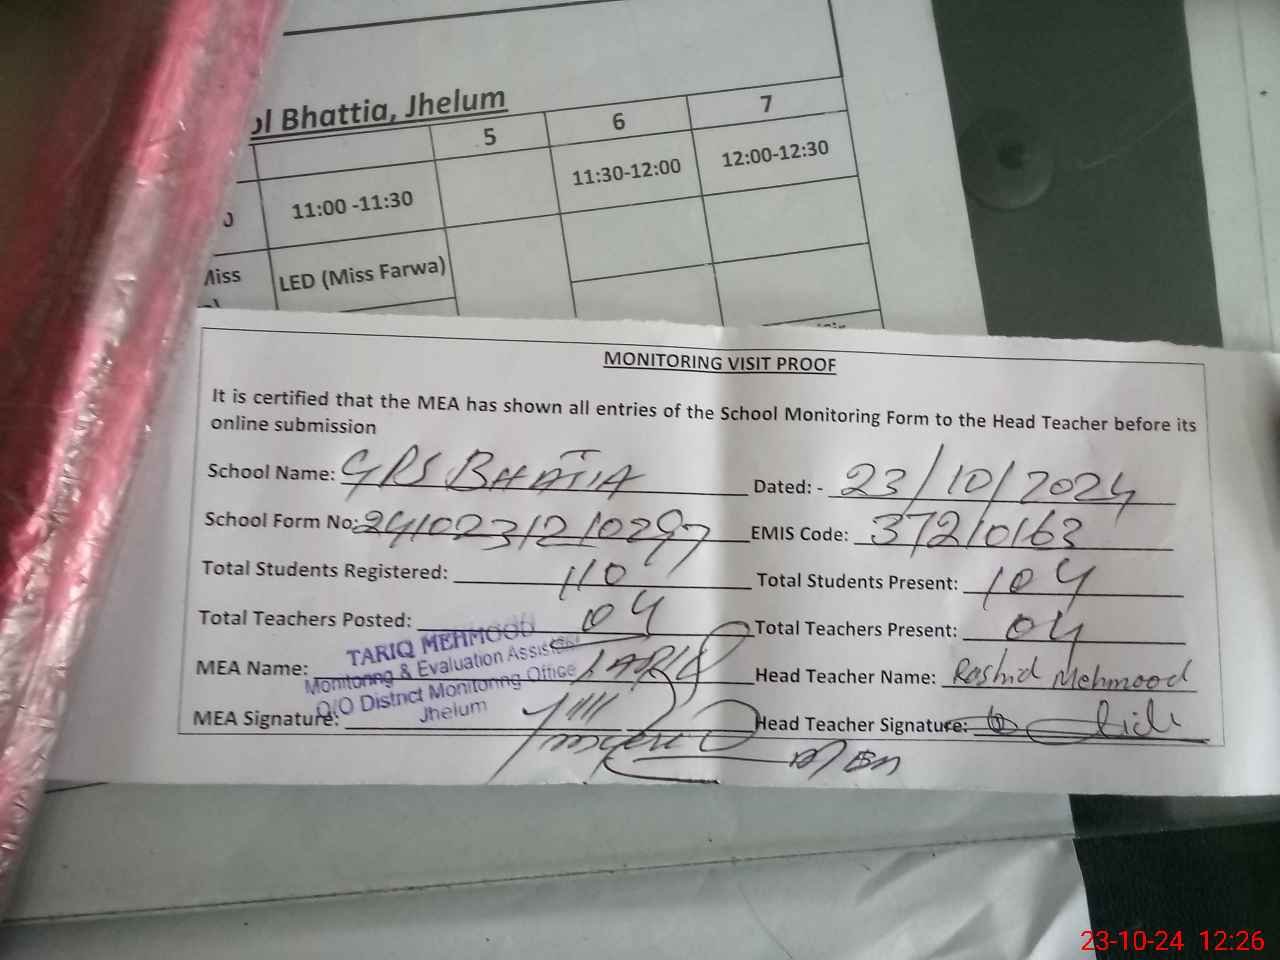 ol Bhattia, Jhelum
5 6 7
11:00 -11:30 11:30-12:00 12:00-12:30
Miss LED (Miss Farwa)
MONITORING VISIT PROOF
It is certified that the MEA has shown all entries of the School Monitoring Form to the Head Teacher before its
online submission
School Name: GPS BHATIA Dated: - 23/10/2024
School Form No: 2410231210297 EMIS Code: 37210163
Total Students Registered: 110 Total Students Present: 104
Total Teachers Posted: 04 Total Teachers Present: 04
MEA Name: TARIQ Head Teacher Name: Rashid Mehmood
TARIQ MEHMOOD
Monitoring & Evaluation Assistant
O/O District Monitoring Office
Jhelum
MEA Signature: Head Teacher Signature:
23-10-24 12:26